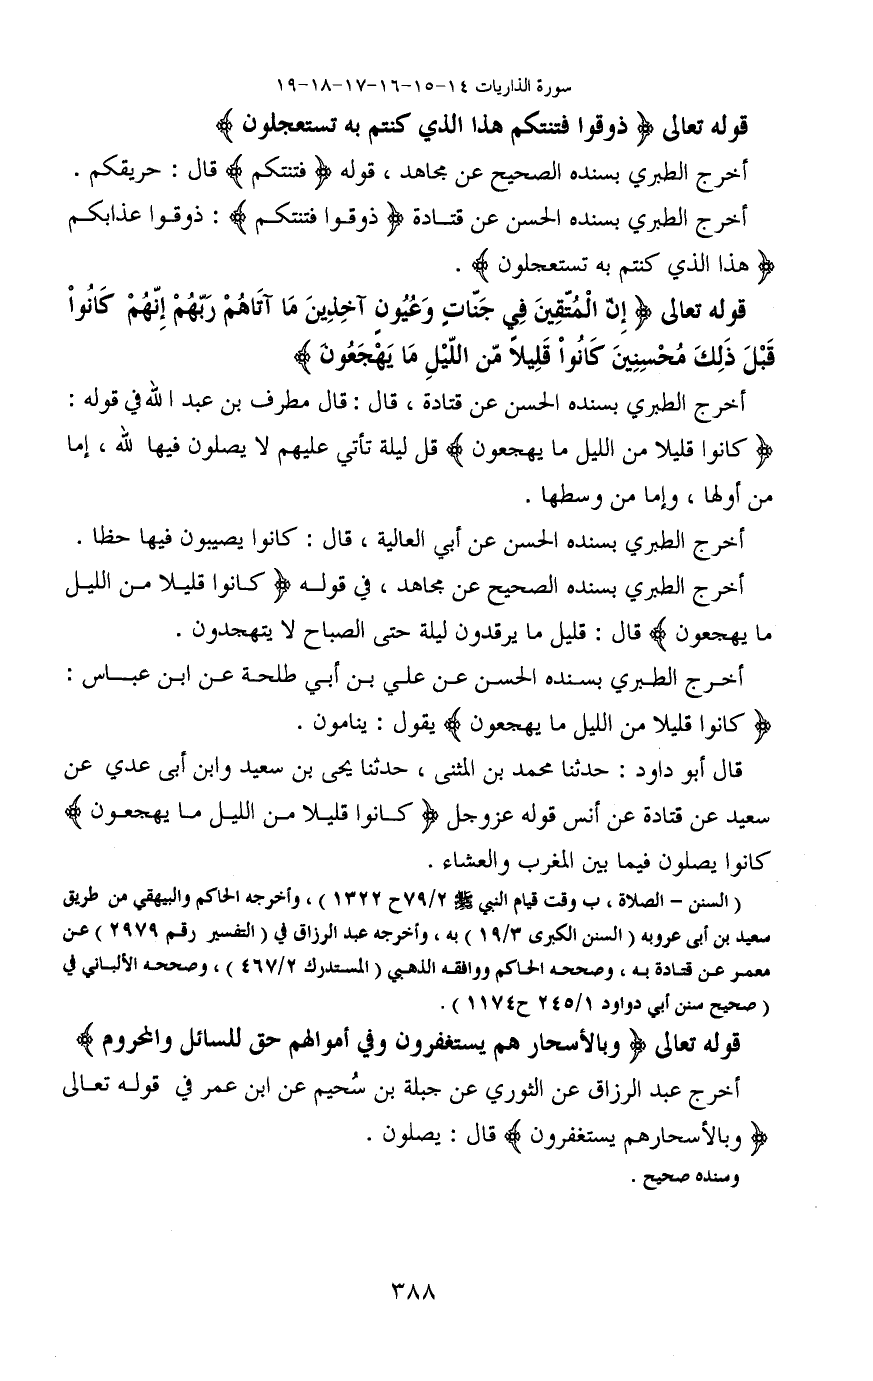 سورة الذاريات ١٤-١٥-١٦-١٧-١٨-١٩
قوله تعالى ﴿ ذوقوا فتنتكم هذا الذي كنتم به تستعجلون ﴾
أخرج الطبري بسنده الصحيح عن مجاهد ، قوله ﴿ فتنتكم ﴾ قال : حريقكم .
أخرج الطبري بسنده الحسن عن قتادة ﴿ ذوقوا فتنتكم ﴾ : ذوقوا عذابكم
﴿ هذا الذي كنتم به تستعجلون ﴾ .
قوله تعالى ﴿ إِنّ الْمُتّقِينَ فِي جَنّاتٍ وَعُيُونٍ آخِذِينَ مَا آتَاهُمْ رَبّهُمْ إِنّهُمْ كَانُواْ
قَبْلَ ذَلِكَ مُحْسِنِينَ كَانُواْ قَلِيلاً مّن اللّيْلِ مَا يَهْجَعُونَ ﴾
أخرج الطبري بسنده الحسن عن قتادة ، قال : قال مطرف بن عبد الله في قوله :
﴿ كانوا قليلا من الليل ما يهجعون ﴾ قل ليلة تأتي عليهم لا يصلون فيها لله ، إما
من أولها ، وإما من وسطها .
أخرج الطبري بسنده الحسن عن أبي العالية ، قال : كانوا يصيبون فيها حظا .
أخرج الطبري بسنده الصحيح عن مجاهد ، في قوله ﴿ كانوا قليلا من الليل
ما يهجعون ﴾ قال : قليل ما يرقدون ليلة حتى الصباح لا يتهجدون .
أخرج الطبري بسنده الحسن عن علي بن أبي طلحة عن ابن عباس :
﴿ كانوا قليلا من الليل ما يهجعون ﴾ يقول : ينامون .
قال أبو داود : حدثنا محمد بن المثنى ، حدثنا يحيى بن سعيد وابن أبى عدي عن
سعيد عن قتادة عن أنس قوله عزوجل ﴿ كانوا قليلا من الليل ما يهجعون ﴾
كانوا يصلون فيما بين المغرب والعشاء .
( السنن – الصلاة ، ب وقت قيام النبي ﷺ ٧٩/٢ح ١٣٢٢ ) ، وأخرجه الحاكم والبيهقي من طريق
سعيد بن أبى عروبه ( السنن الكبرى ١٩/٣ ) به ، وأخرجه عبد الرزاق في ( التفسير رقم ٢٩٧٩ ) عن
معمر عن قتادة به ، وصححه الحاكم ووافقه الذهبي ( المستدرك ٤٦٧/٢ ) ، وصححه الألباني في
( صحيح سنن أبي دواود ٢٤٥/١ ح١١٧٤ ) .
قوله تعالى ﴿ وبالأسحار هم يستغفرون وفي أموالهم حق للسائل والمحروم ﴾
أخرج عبد الرزاق عن الثوري عن جبلة بن سُحيم عن ابن عمر في قوله تعالى
﴿ وبالأسحارهم يستغفرون ﴾ قال : يصلون .
وسنده صحيح .
٣٨٨